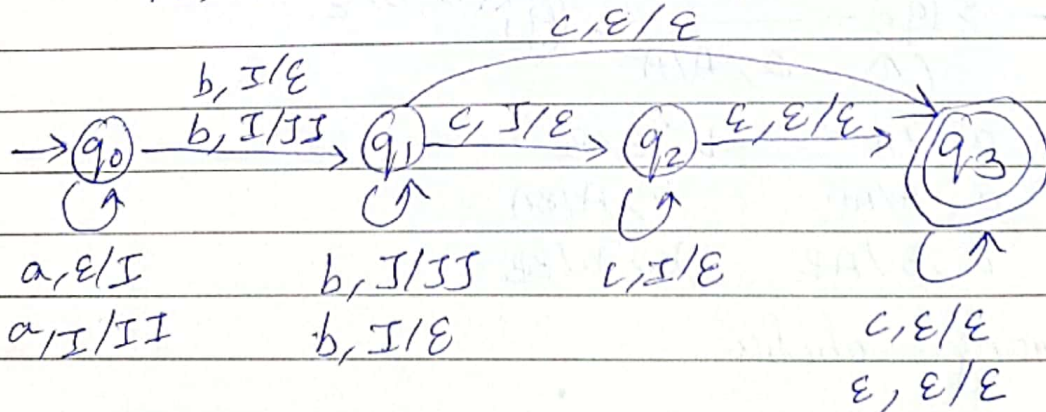 c, ε/ε
b, I/ε
b, I/II
c, I/ε
ε, ε/ε
q0
q1
q2
q3
a, ε/I
b, I/II
c, I/ε
a, I/II
b, I/ε
c, ε/ε
ε, ε/ε